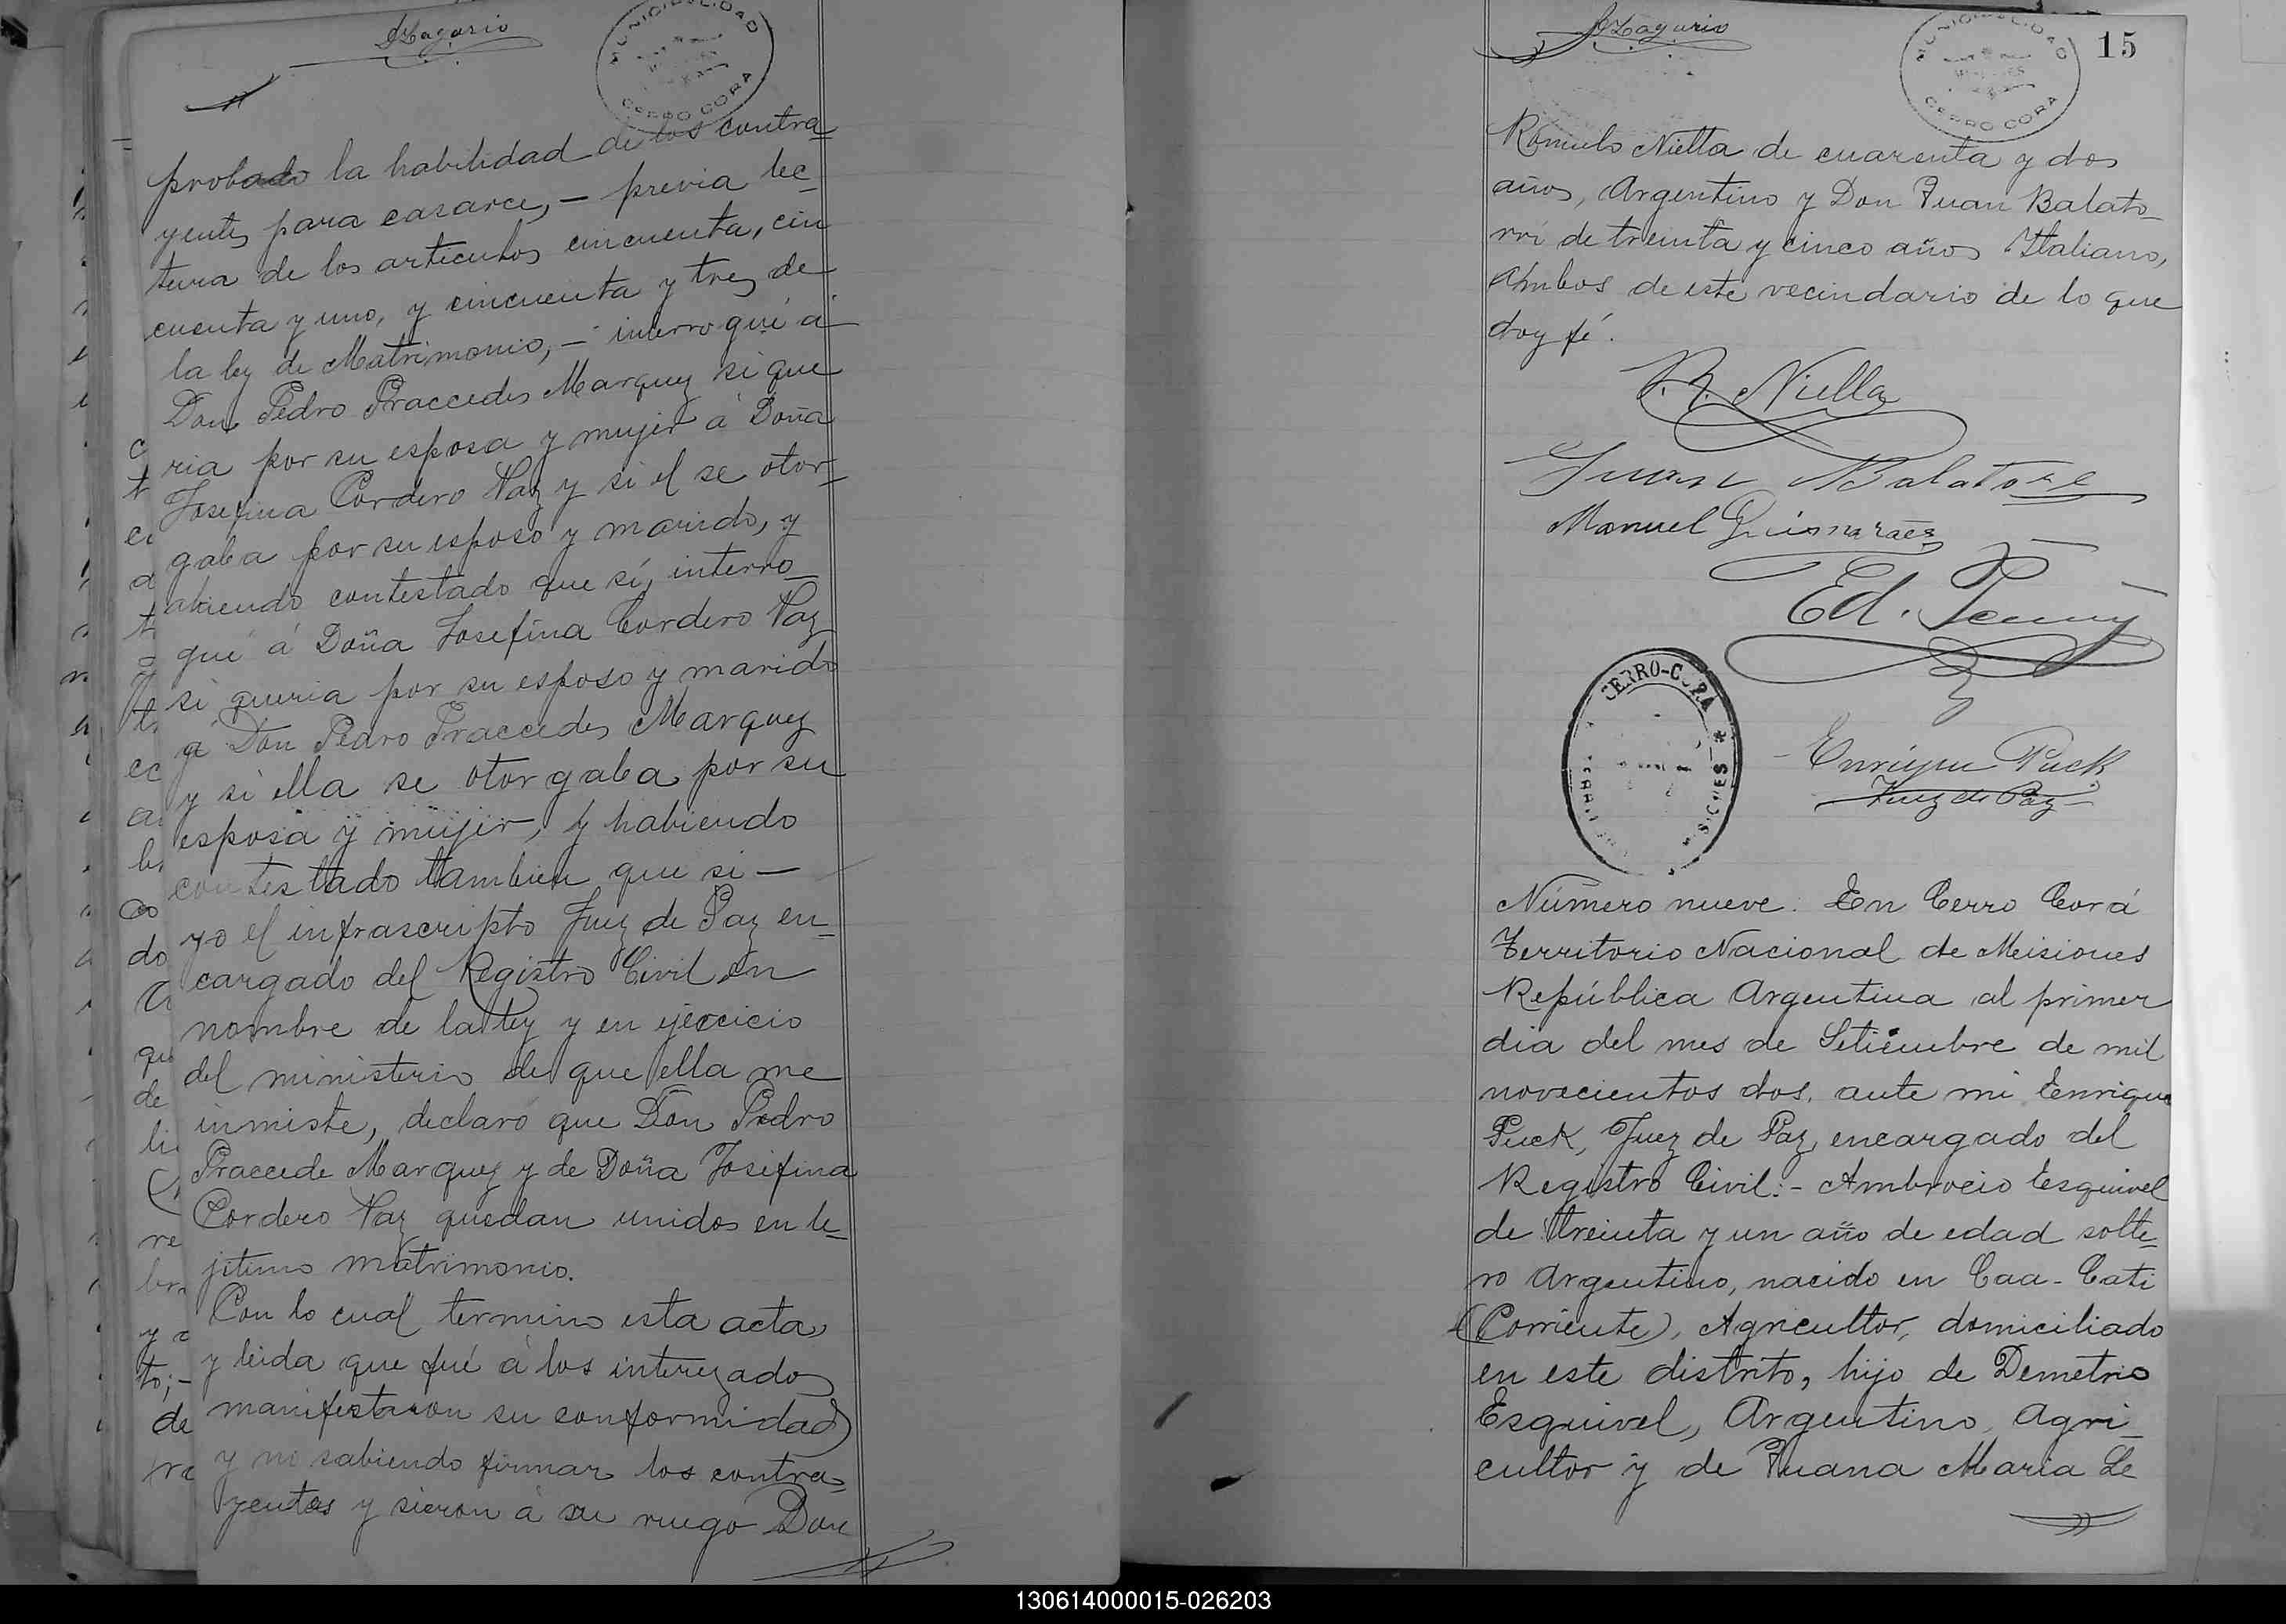 MUNICIPALIDAD
CERRO CORA
probado la habilidad de los contra-
yentes para casarce, — previa lec-
tura de los articulos cincuenta, cin
cuenta y uno, y cincuenta y tres de
la ley de Matrimonio, — interrogué á
Don Pedro Praccedes Marquez si que
ria por su esposa y mujer á Doña
Josefina Cordero Vaz y si el se otor-
gaba por su esposo y marido, y
abiendo contestado que sí, interro-
gué á Doña Josefina Cordero Vaz
si queria por su esposo y marido
á Don Pedro Praccedes Marquez
y si ella se otorgaba por su
esposa y mujer, y habiendo
contestado tambien que si —
yo el infrascripto Juez de Paz en-
cargado del Registro Civil en
nombre de la ley y en ejercicio
del ministerio de que ella me
inmiste, declaro que Don Pedro
Praccede Marquez y de Doña Josifina
Cordero Vaz quedan unidos en le-
jitimo matrimonio.
Con lo cual termino esta acta
y leida que fué á los interezados
manifestaron su conformidad
y no sabiendo firmar los contra-
yentes y sieron á su ruego Don
MUNICIPALIDAD
CERRO CORA
15
Rómulo Niella de cuarenta y dos
años, Argentino y Don Juan Balato-
rri de treinta y cinco años Italiano,
Ambos de este vecindario de lo que
doy fé.
R. Niella
Juan Balatore
Manuel Guimaraes
Ed.
CERRO-CORA
MISIONES
Enrique Puck
Juez de Paz
Número nueve. En Cerro Corá
Territorio Nacional de Misiones
República Argentina al primer
dia del mes de Setiembre de mil
novecientos dos. ante mi Enrique
Puck, Juez de Paz, encargado del
Registro Civil:- Ambrocio Esquivel
de treinta y un año de edad solte-
ro Argentino, nacido en Caa-Cati
(Corriente), Agricultor, domiciliado
en este distrito, hijo de Demetrio
Esquivel, Argentino, Agri-
cultor y de Juana Maria Le
130614000015-026203